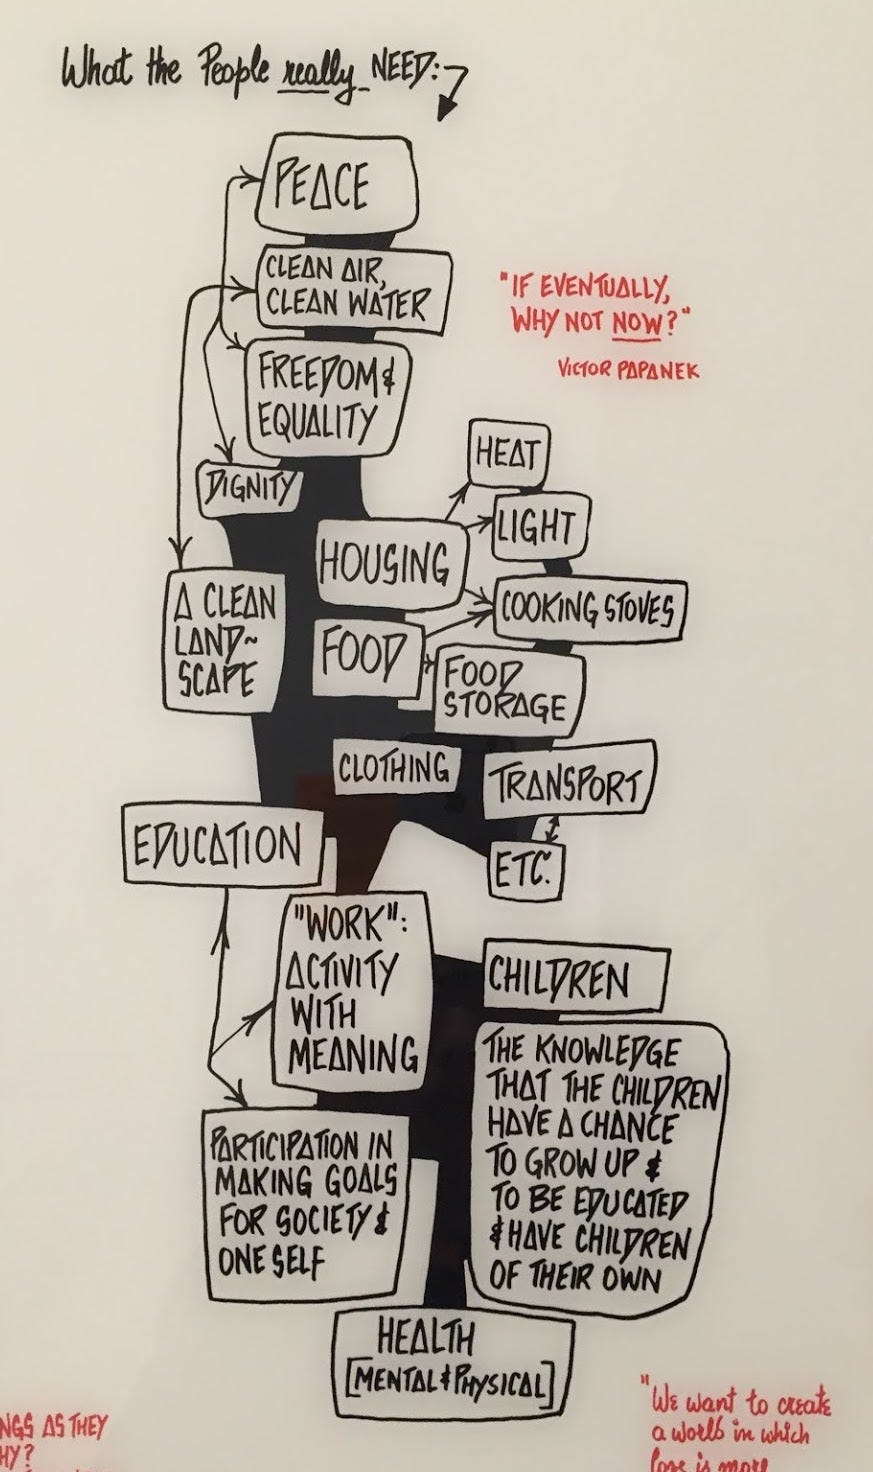 What the People really NEED:
PEACE
CLEAN AIR,
CLEAN WATER
"IF EVENTUALLY,
WHY NOT NOW?"
VICTOR PAPANEK
FREEDOM &
EQUALITY
HEAT
DIGNITY
LIGHT
HOUSING
COOKING STOVES
A CLEAN
LAND~
SCAPE
FOOD
FOOD
STORAGE
CLOTHING
TRANSPORT
EDUCATION
ETC.
"WORK":
ACTIVITY
WITH
MEANING
CHILDREN
THE KNOWLEDGE
THAT THE CHILDREN
HAVE A CHANCE
TO GROW UP &
TO BE EDUCATED
& HAVE CHILDREN
OF THEIR OWN
PARTICIPATION IN
MAKING GOALS
FOR SOCIETY &
ONE SELF
HEALTH
[MENTAL & PHYSICAL]
NGS AS THEY
HY?
"We want to create
a world in which
love is more